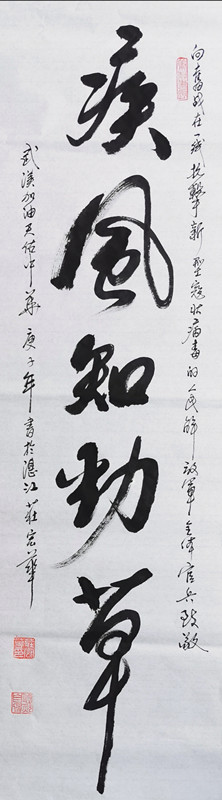 向奋战在一线抗擊新型冠状病毒的人民解放軍全体官兵致敬
疾風知勁草
武漢加油天佑中华 庚子年書於湛江 莊宏華